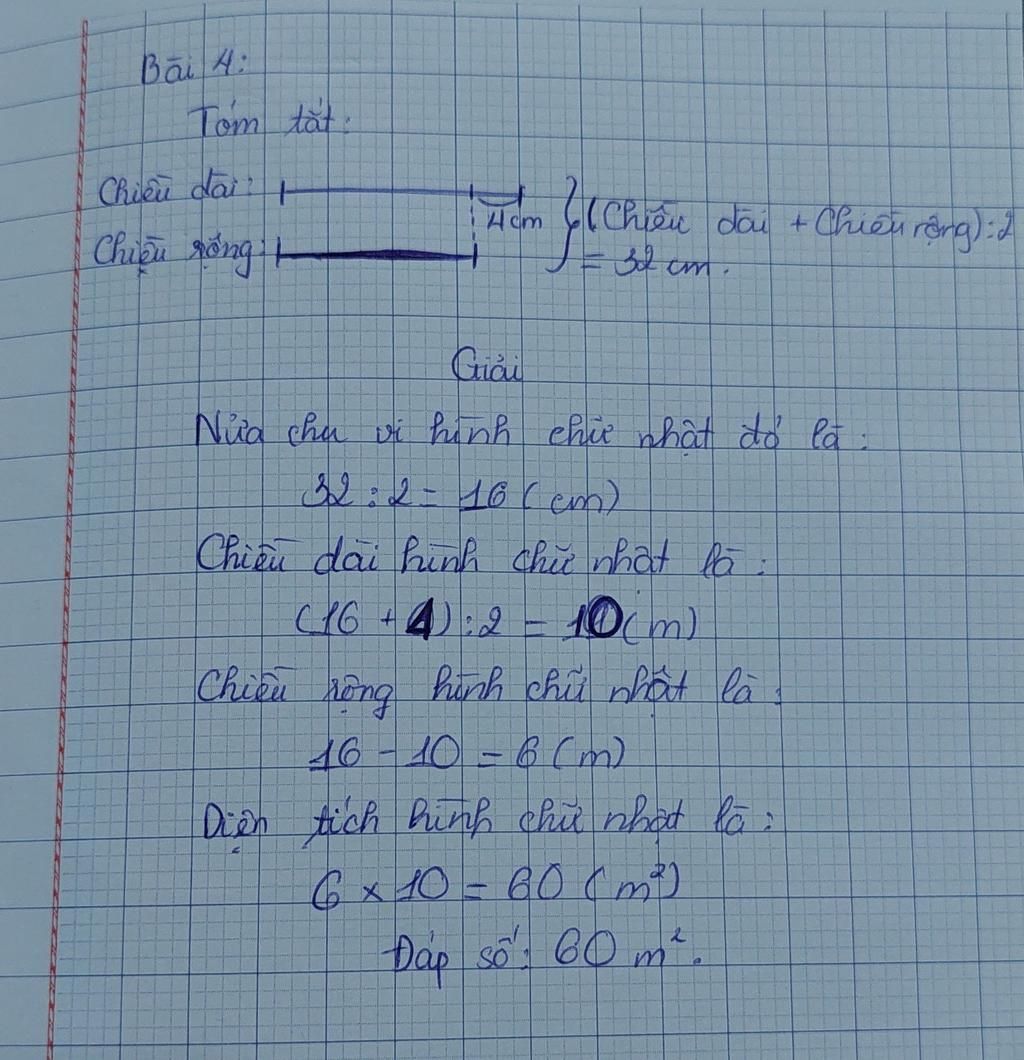 Bài 4:
Tóm tắt:
Chiều dài:
4cm
Chiều rộng:
(Chiều dài + Chiều rộng):2
= 32 cm.
Giải
Nửa chu vi hình chữ nhật đó là:
32 : 2 = 16 (cm)
Chiều dài hình chữ nhật là:
(16 + 4) : 2 = 10 (m)
Chiều rộng hình chữ nhật là:
16 - 10 = 6 (m)
Diện tích hình chữ nhật là:
6 x 10 = 60 (m²)
Đáp số: 60 m².